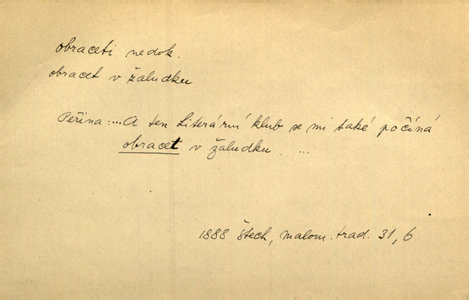 obraceti nedok.
obracet v žaludku
Peřina: ... A ten Literární klub se mi také počíná
obracet v žaludku ...
1888 Štech, Malom. trad. 31, 6